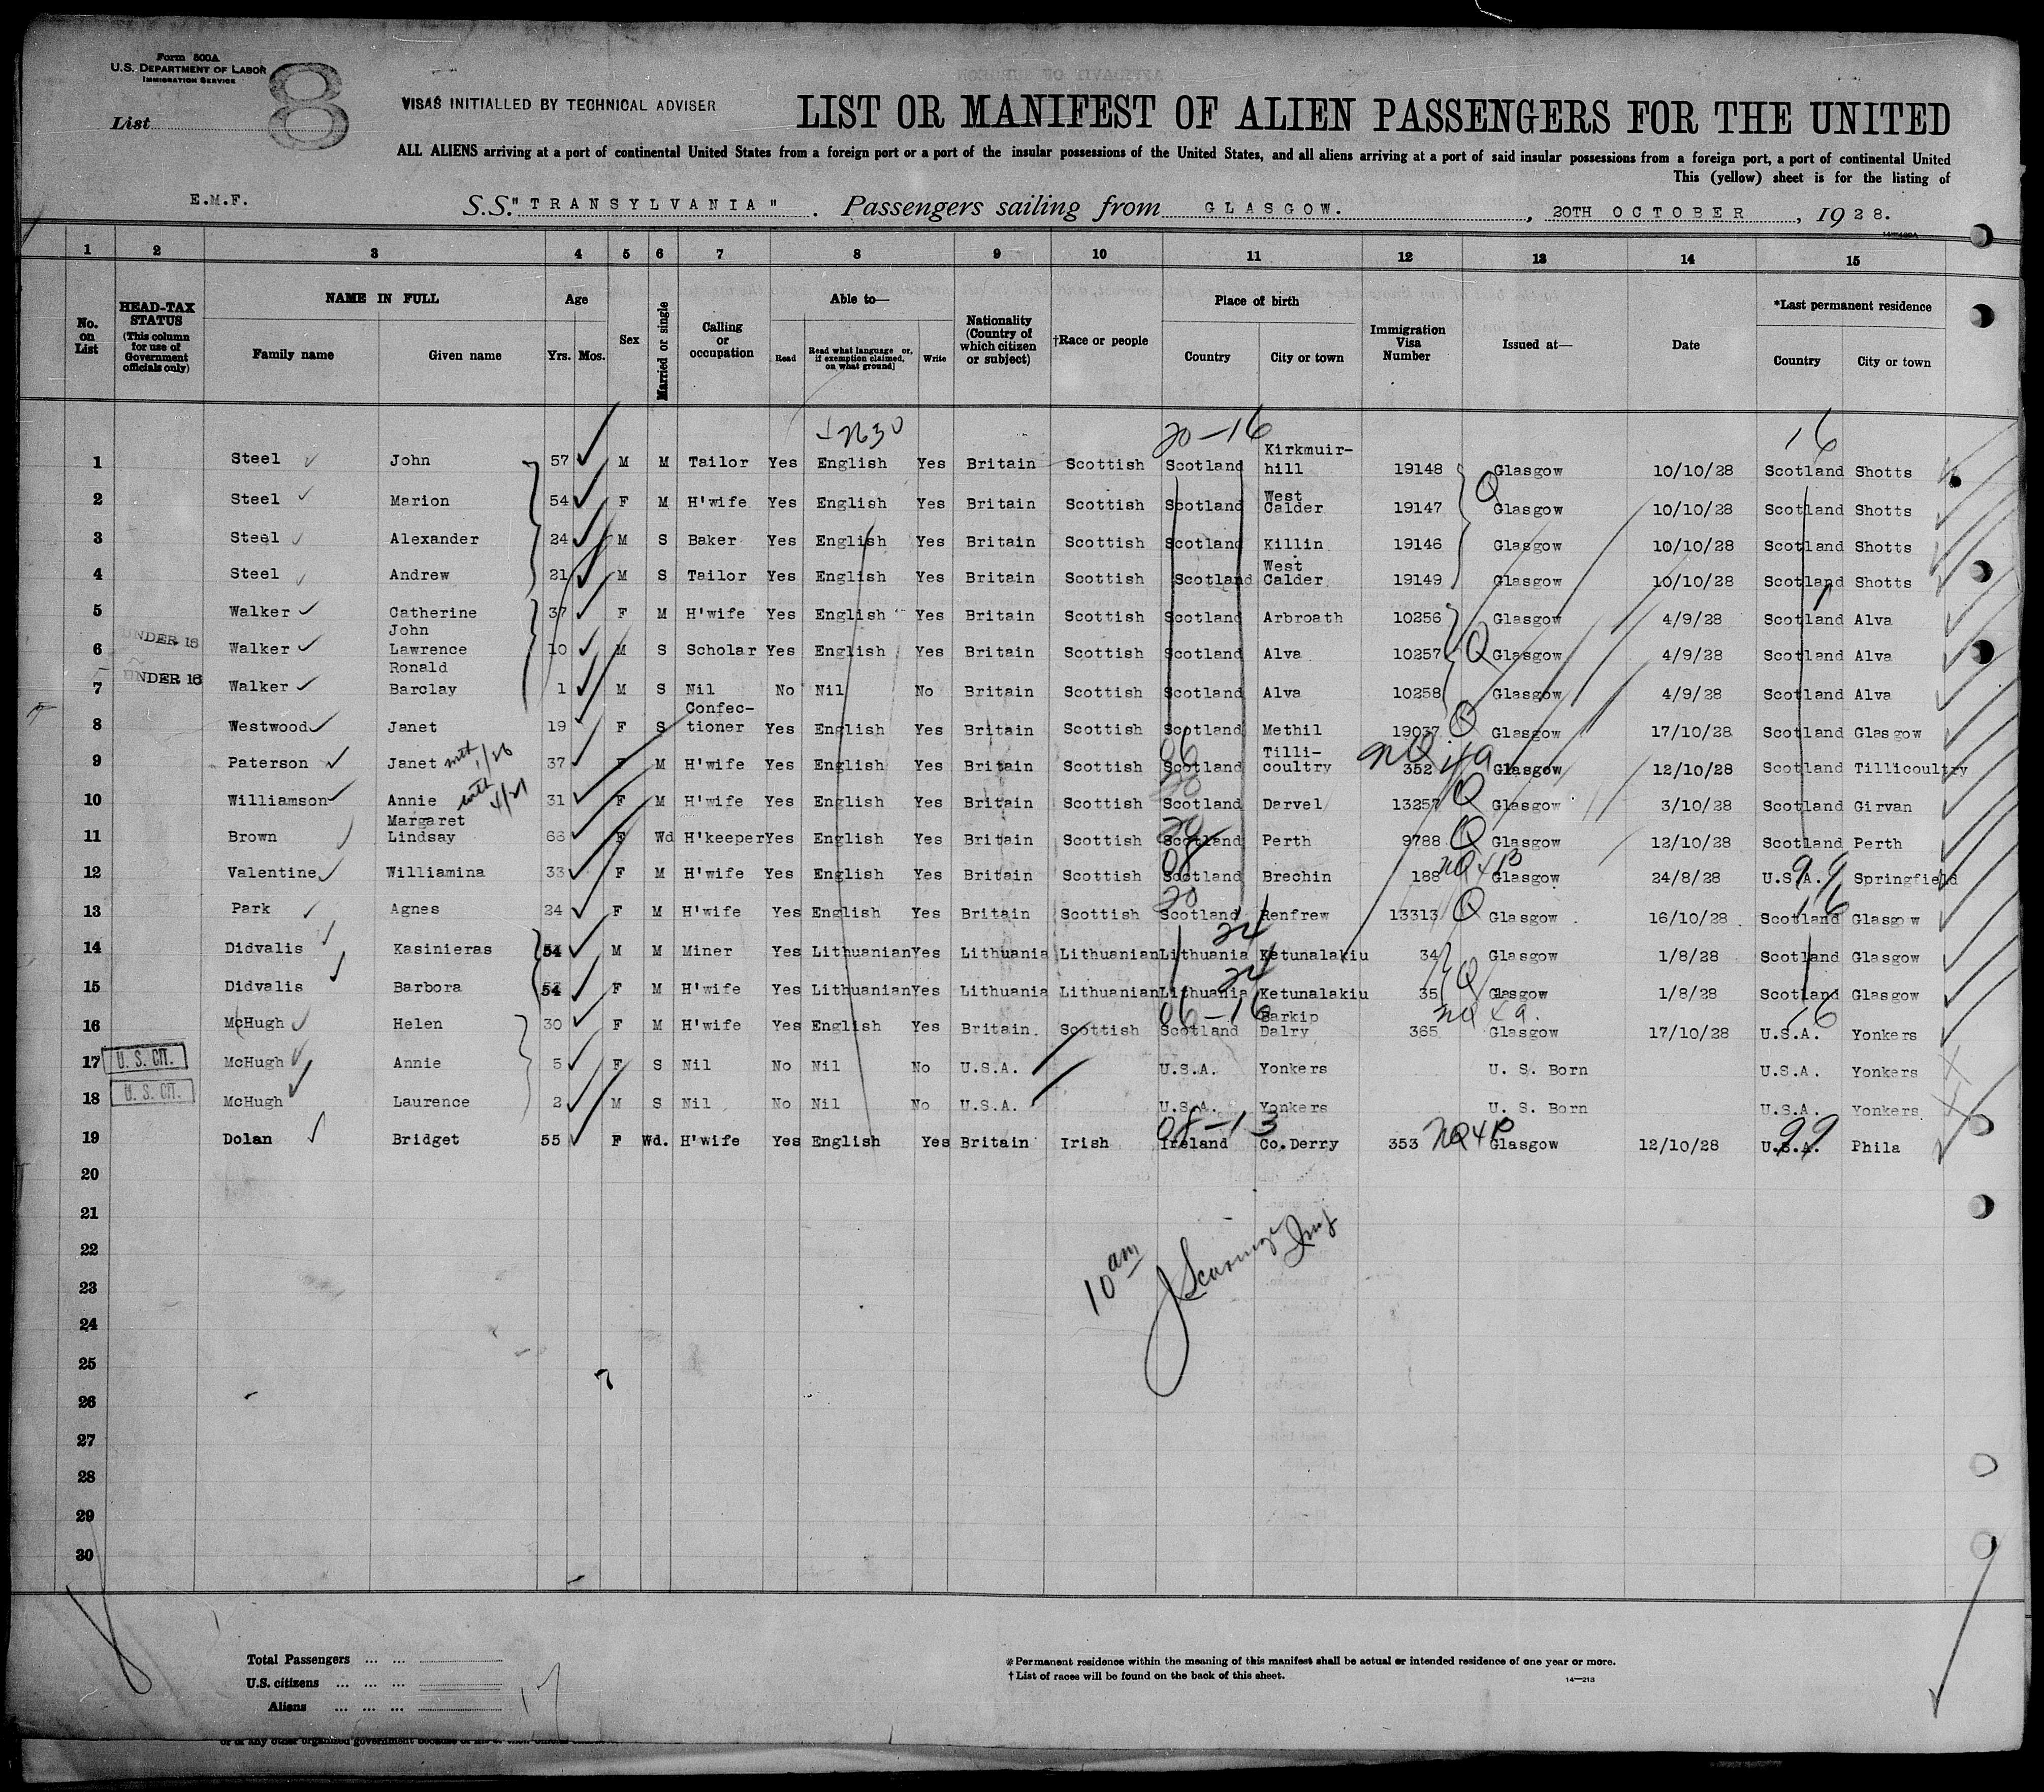 Form 500A
U.S. DEPARTMENT OF LABOR
IMMIGRATION SERVICE
List 8
VISAS INITIALLED BY TECHNICAL ADVISER
LIST OR MANIFEST OF ALIEN PASSENGERS FOR THE UNITED
ALL ALIENS arriving at a port of continental United States from a foreign port or a port of the insular possessions of the United States, and all aliens arriving at a port of said insular possessions from a foreign port, a port of continental United
This (yellow) sheet is for the listing of
E.M.F.
S.S. "TRANSYLVANIA". Passengers sailing from GLASGOW., 20TH OCTOBER, 1928.
1 2 3 4 5 6 7 8 9 10 11 12 13 14 15
No. on List
HEAD-TAX STATUS (This column for use of Government officials only)
NAME IN FULL
Family name Given name
Age
Yrs. Mos.
Sex
Married or single
Calling or occupation
Able to—
Read Read what language or, if exemption claimed, on what ground] Write
Nationality (Country of which citizen or subject)
†Race or people
Place of birth
Country City or town
Immigration Visa Number
Issued at—
Date
*Last permanent residence
Country City or town
20-16 16
1 Steel John 57 M M Tailor Yes English Yes Britain Scottish Scotland Kirkmuir-hill 19148 Glasgow 10/10/28 Scotland Shotts
2 Steel Marion 54 F M H'wife Yes English Yes Britain Scottish Scotland West Calder 19147 Q Glasgow 10/10/28 Scotland Shotts
3 Steel Alexander 24 M S Baker Yes English Yes Britain Scottish Scotland Killin 19146 Glasgow 10/10/28 Scotland Shotts
4 Steel Andrew 21 M S Tailor Yes English Yes Britain Scottish Scotland West Calder 19149 Glasgow 10/10/28 Scotland Shotts
5 Walker Catherine 37 F M H'wife Yes English Yes Britain Scottish Scotland Arbroath 10256 Glasgow 4/9/28 Scotland Alva
UNDER 16
6 Walker John Lawrence 10 M S Scholar Yes English Yes Britain Scottish Scotland Alva 10257 Q Glasgow 4/9/28 Scotland Alva
UNDER 16
7 Walker Ronald Barclay 1 M S Nil No Nil No Britain Scottish Scotland Alva 10258 Glasgow 4/9/28 Scotland Alva
8 Westwood Janet 19 F S Confec-tioner Yes English Yes Britain Scottish Scotland Methil 19037 Q Glasgow 17/10/28 Scotland Glasgow
9 Paterson Janet 37 F M H'wife Yes English Yes Britain Scottish 06 Scotland Tilli-coultry 352 Glasgow 12/10/28 Scotland Tillicoultry
10 Williamson Annie 31 F M H'wife Yes English Yes Britain Scottish 20 Scotland Darvel 13257 Q Glasgow 3/10/28 Scotland Girvan
11 Brown Margaret Lindsay 66 F Wd H'keeper Yes English Yes Britain Scottish 20 Scotland Perth 9788 Q Glasgow 12/10/28 Scotland Perth
12 Valentine Williamina 33 F M H'wife Yes English Yes Britain Scottish 08 Scotland Brechin 188 NQ4B Glasgow 24/8/28 U.S.A. 99 Springfield
13 Park Agnes 24 F M H'wife Yes English Yes Britain Scottish 20 Scotland Renfrew 13313 Q Glasgow 16/10/28 16 Scotland Glasgow
14 Didvalis Kasinieras 54 M M Miner Yes Lithuanian Yes Lithuania Lithuanian Lithuania Ketunalakiu 34 Glasgow 1/8/28 Scotland Glasgow
15 Didvalis Barbora 54 F M H'wife Yes Lithuanian Yes Lithuania Lithuanian Lithuania Ketunalakiu 35 Q Glasgow 1/8/28 Scotland Glasgow
16 McHugh Helen 30 F M H'wife Yes English Yes Britain. Scottish 06-16 Scotland Barkip Dalry 365 Glasgow 17/10/28 16 U.S.A. Yonkers
17 U. S. CIT. McHugh Annie 5 F S Nil No Nil No U.S.A. U.S.A. Yonkers U. S. Born U.S.A. Yonkers
18 U. S. CIT. McHugh Laurence 2 M S Nil No Nil No U.S.A. U.S.A. Yonkers U. S. Born U.S.A. Yonkers
19 Dolan Bridget 55 F Wd. H'wife Yes English Yes Britain Irish 08-13 Ireland Co.Derry 353 Glasgow 12/10/28 99 U.S.A. Phila
20
21
22
10 am
23
24
25
26
27
28
29
30
Total Passengers ... ...
U.S. citizens ... ... ...
Aliens ... ... ...
*Permanent residence within the meaning of this manifest shall be actual or intended residence of one year or more.
†List of races will be found on the back of this sheet.
14—213